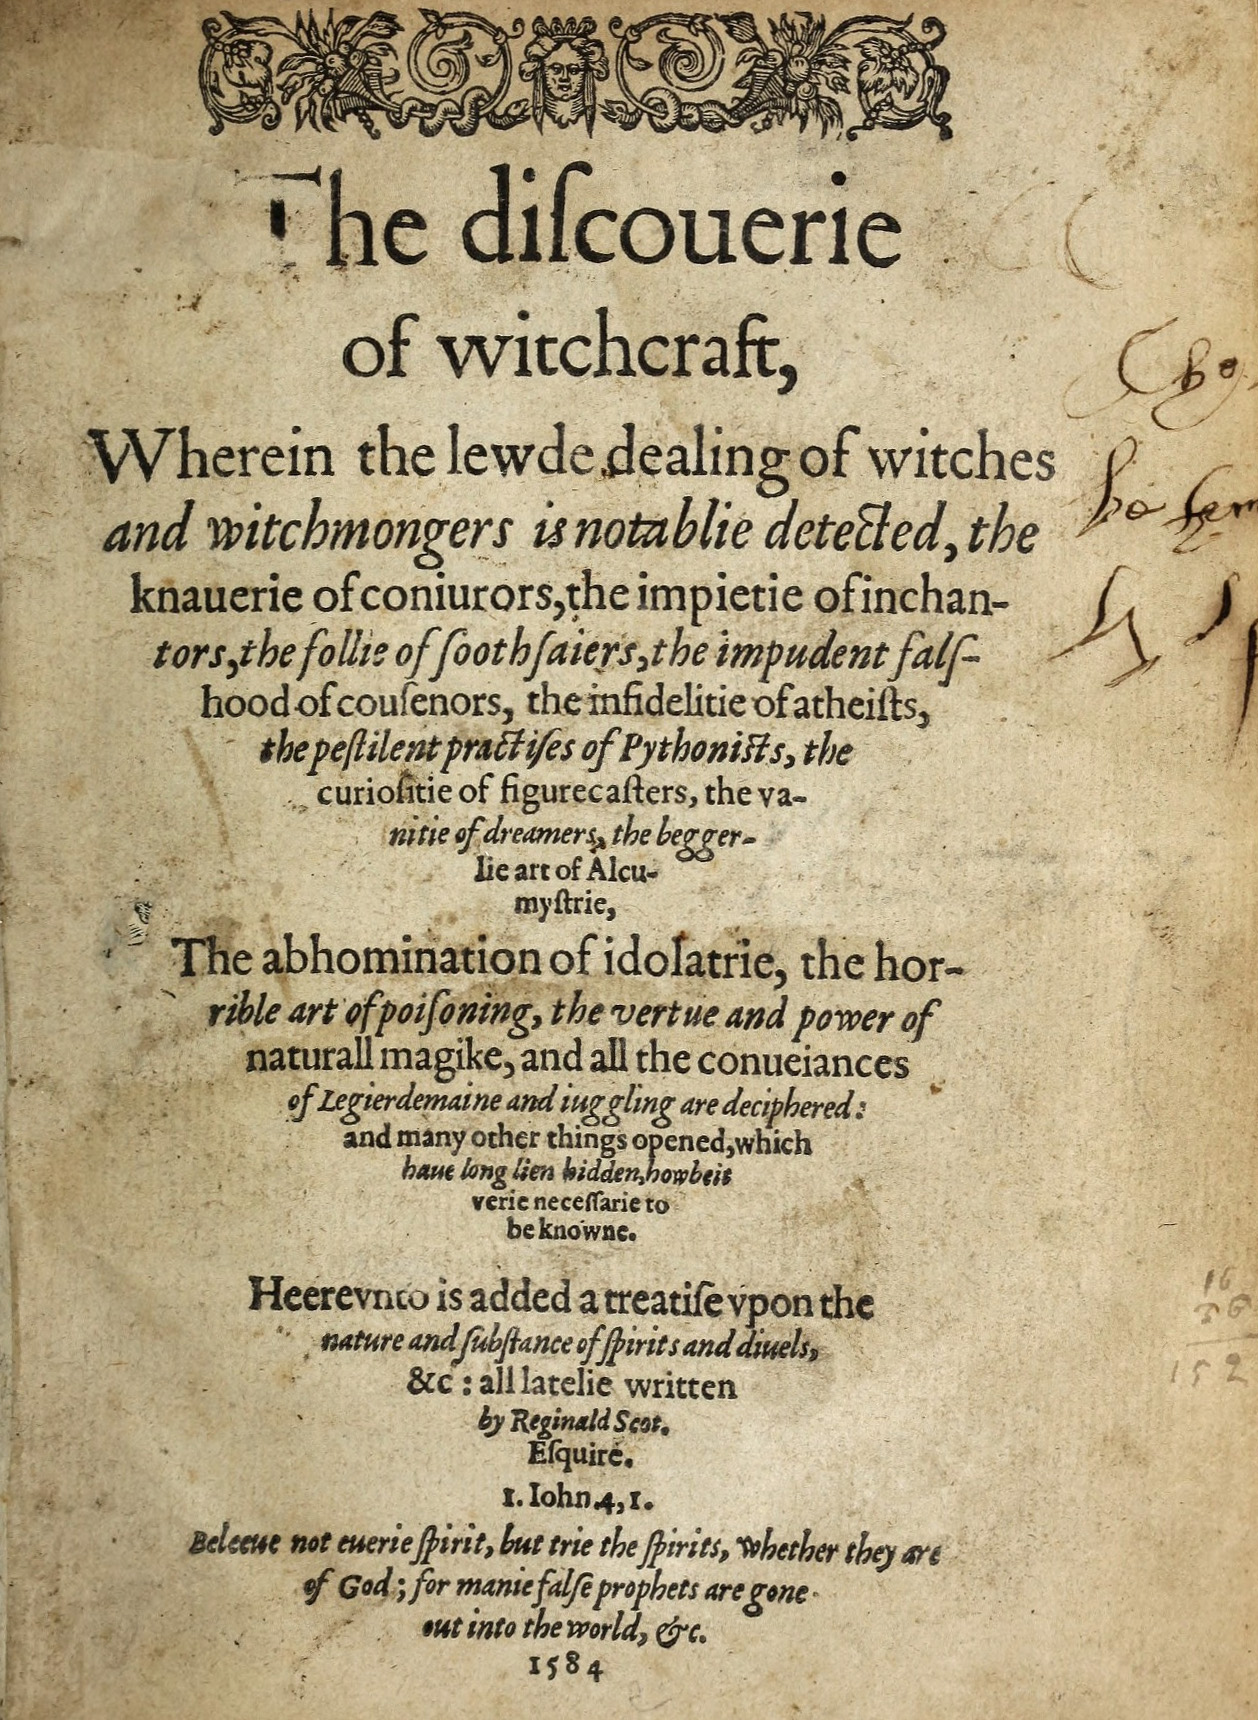 The diſcouerie
of witchcraft,
Wherein the lewde dealing of witches
and witchmongers is notablie detected, the
knauerie of coniurors, the impietie of inchan-
tors, the follie of ſoothſaiers, the impudent falſ-
hood of couſenors, the infidelitie of atheiſts,
the peſtilent practiſes of Pythoniſts, the
curioſitie of figurecaſters, the va-
nitie of dreamers, the begger-
lie art of Alcu-
myſtrie,
The abhomination of idolatrie, the hor-
rible art of poiſoning, the vertue and power of
naturall magike, and all the conueiances
of Legierdemaine and iuggling are deciphered:
and many other things opened, which
haue long lien hidden, howbeit
verie neceſſarie to
be knowne.
Heerevnto is added a treatiſe vpon the
nature and ſubſtance of ſpirits and diuels,
&c : all latelie written
by Reginald Scot.
Eſquire.
1. Iohn.4,1.
Beleeue not euerie ſpirit, but trie the ſpirits, whether they are
of God; for manie falſe prophets are gone
out into the world, &c.
1584
16
152